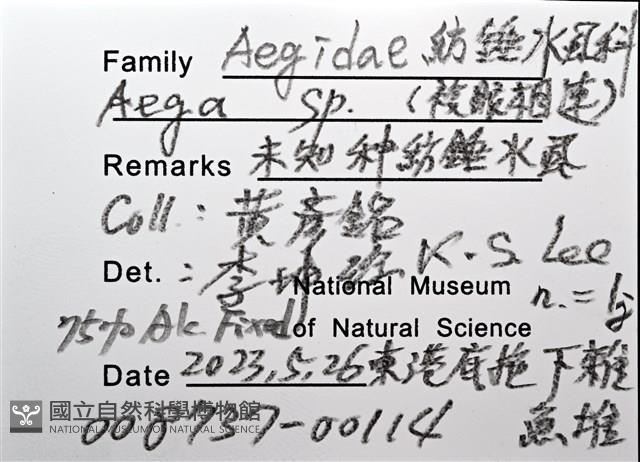 Family Aegidae 紡錘水虱科
Aega sp. (複眼相連)
Remarks 未知种紡錘水虱
Coll : 黃彥銘
Det. : 李坤 K.S. Lee
National Museum n. =
75% Alc Fixed of Natural Science
Date 2023.5.26 東港底拖下雜
國立自然科學博物館
NATIONAL MUSEUM OF NATURAL SCIENCE
-00114 魚堆